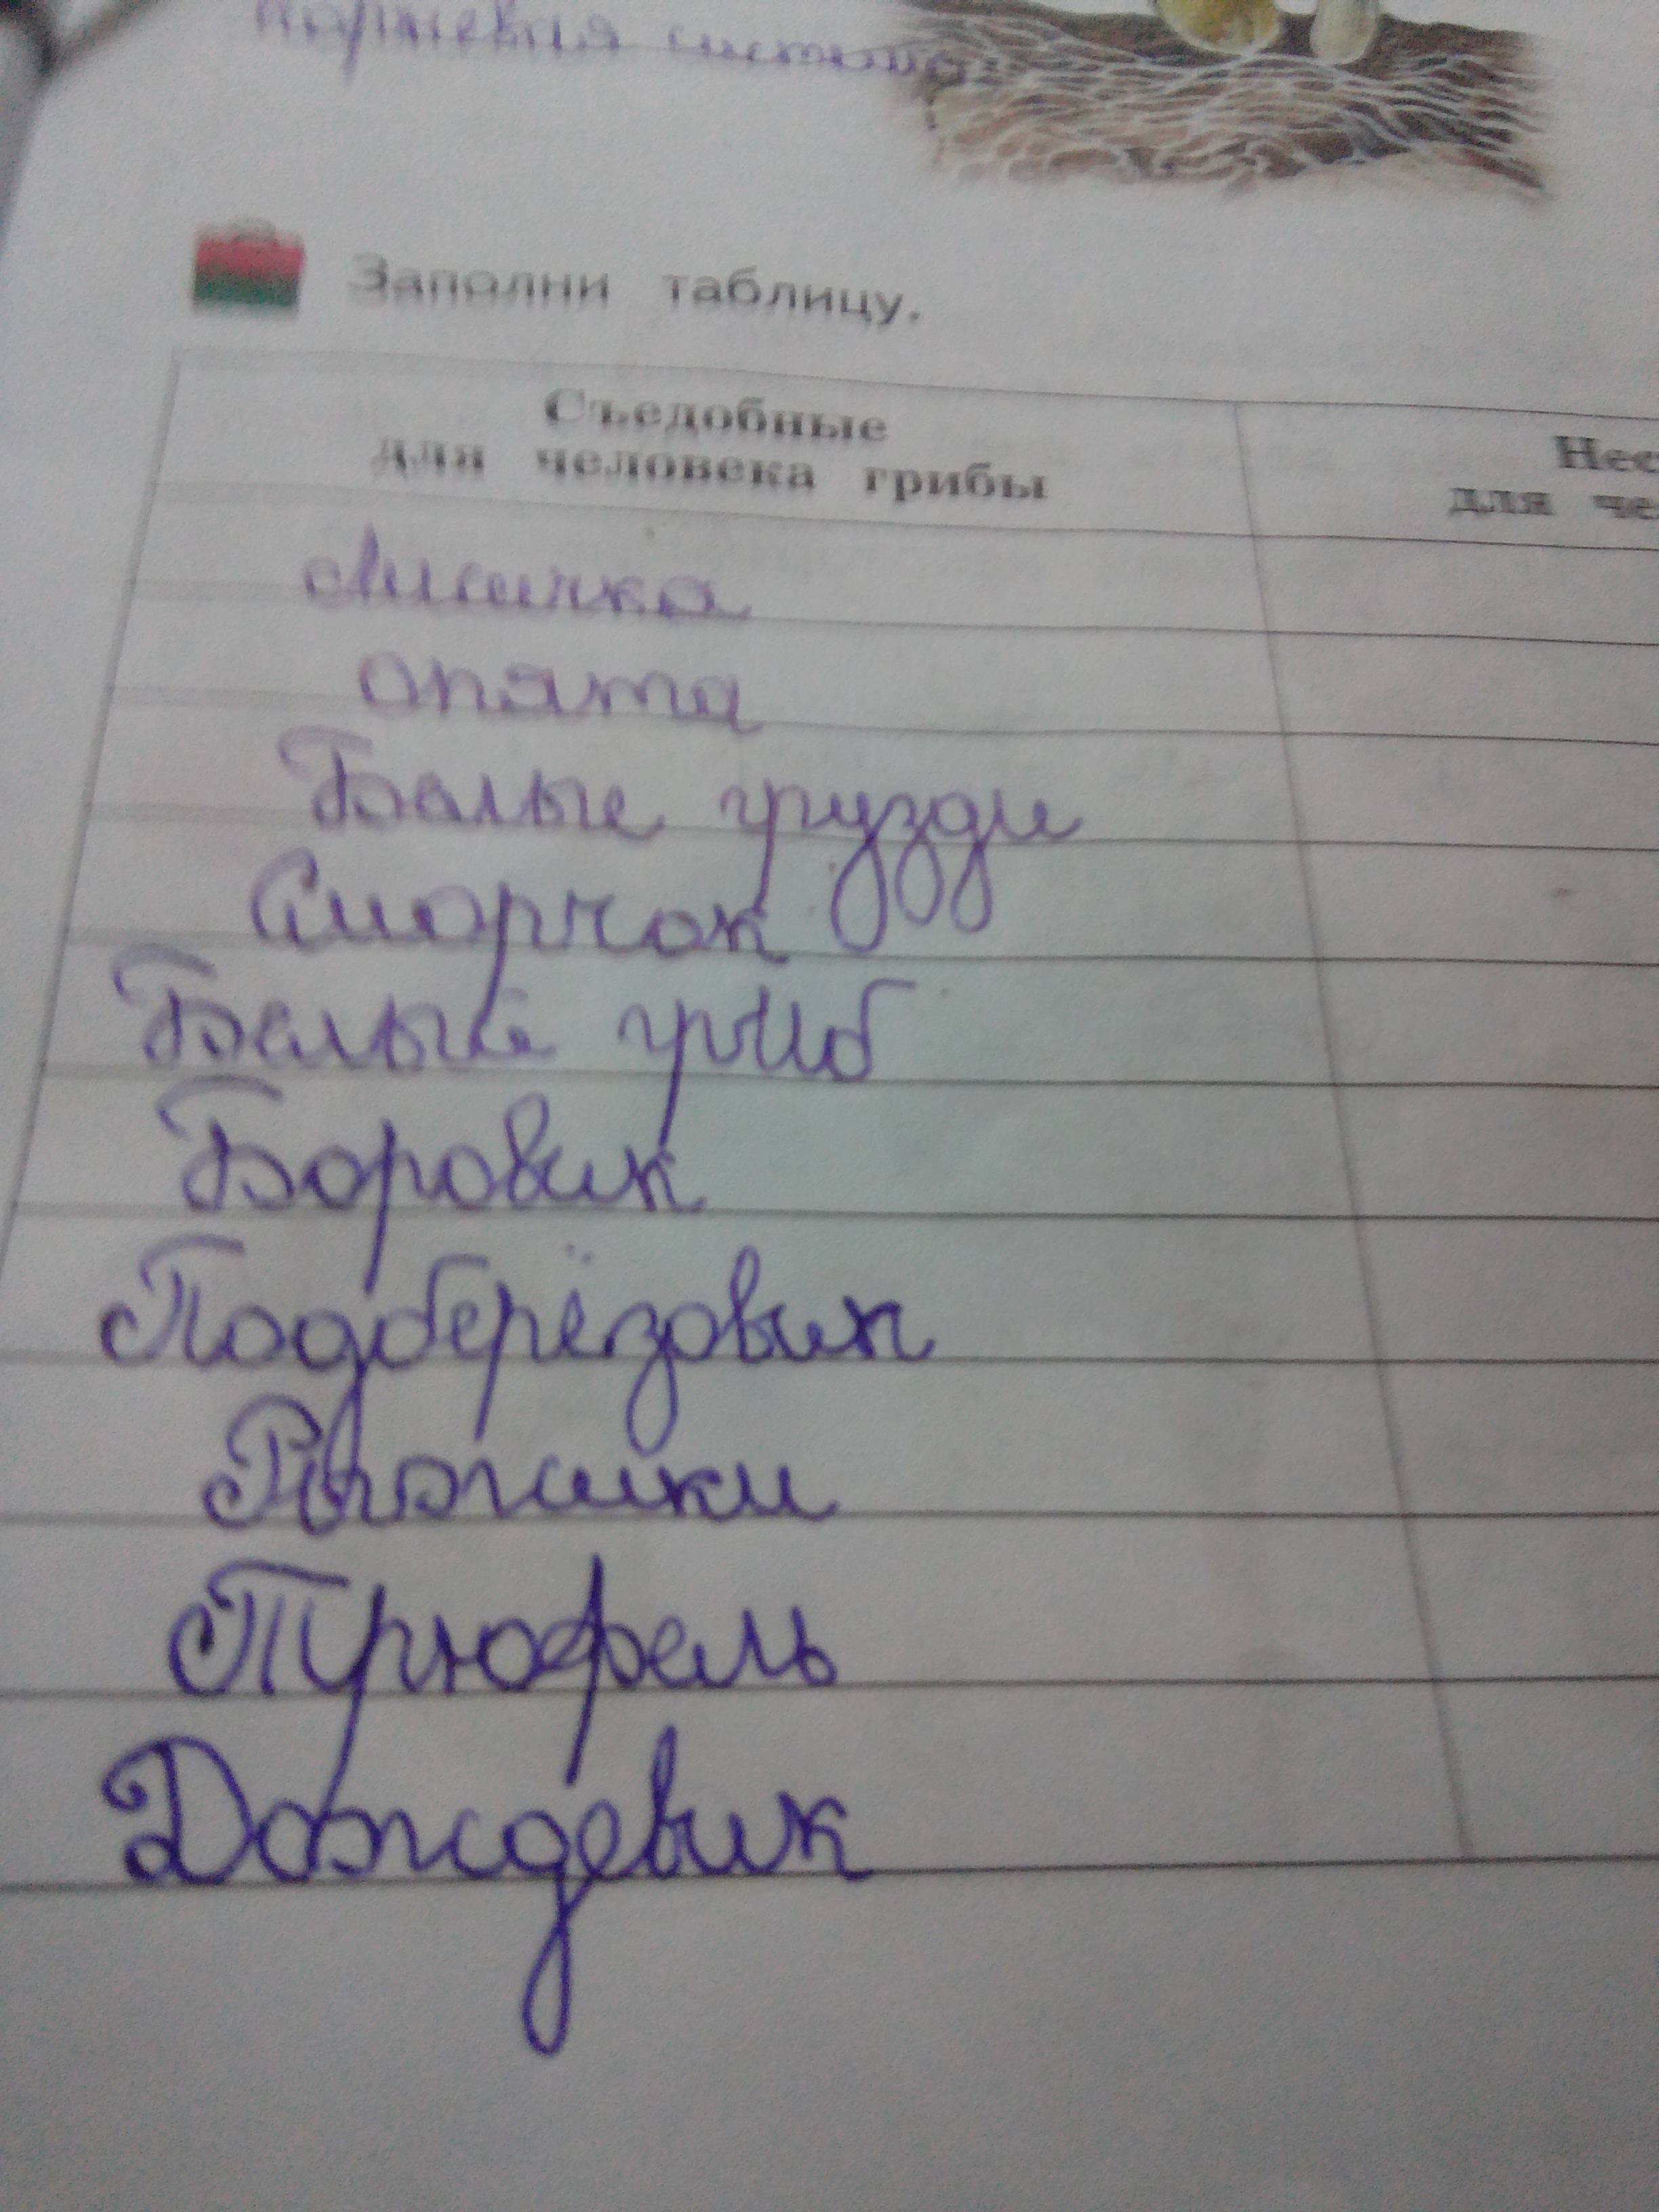 Корневая система
Заполни таблицу.
Съедобные
для человека грибы
Нес
для че
Лисичка
опята
Белые грузди
Сморчок
Белый гриб
Боровик
Подберёзовик
Рыжики
Трюфель
Дождевик